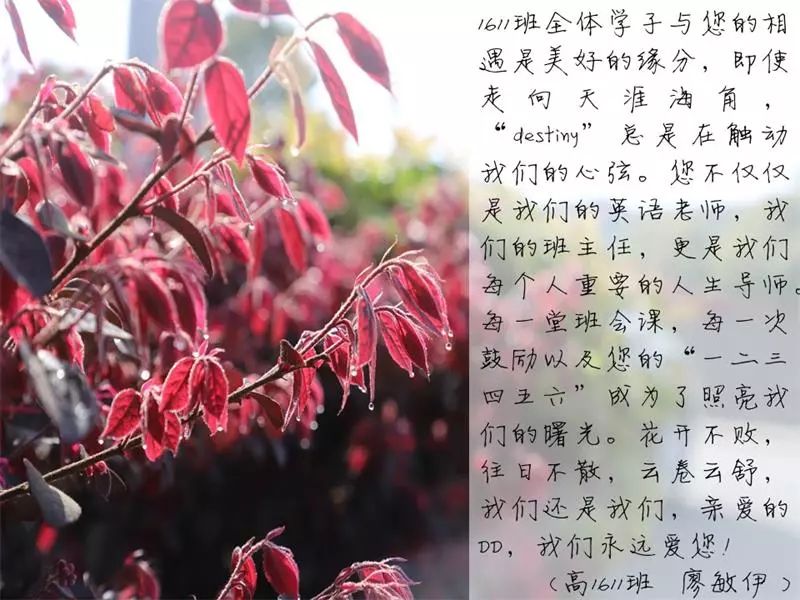 1611班全体学子与您的相
遇是美好的缘分，即使
走向天涯海角，
“destiny”总是在触动
我们的心弦。您不仅仅
是我们的英语老师，我
们的班主任，更是我们
每个人重要的人生导师。
每一堂班会课，每一次
鼓励以及您的“一二三
四五六”成为了照亮我
们的曙光。花开不败，
往日不散，云卷云舒，
我们还是我们，亲爱的
DD，我们永远爱您！
（高1611班 廖敏伊）